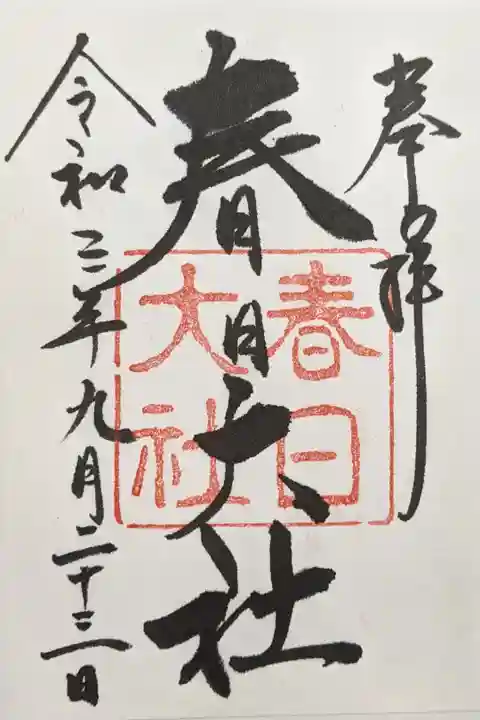 奉拝
春日大社
春日
大社
令和三年九月二十三日